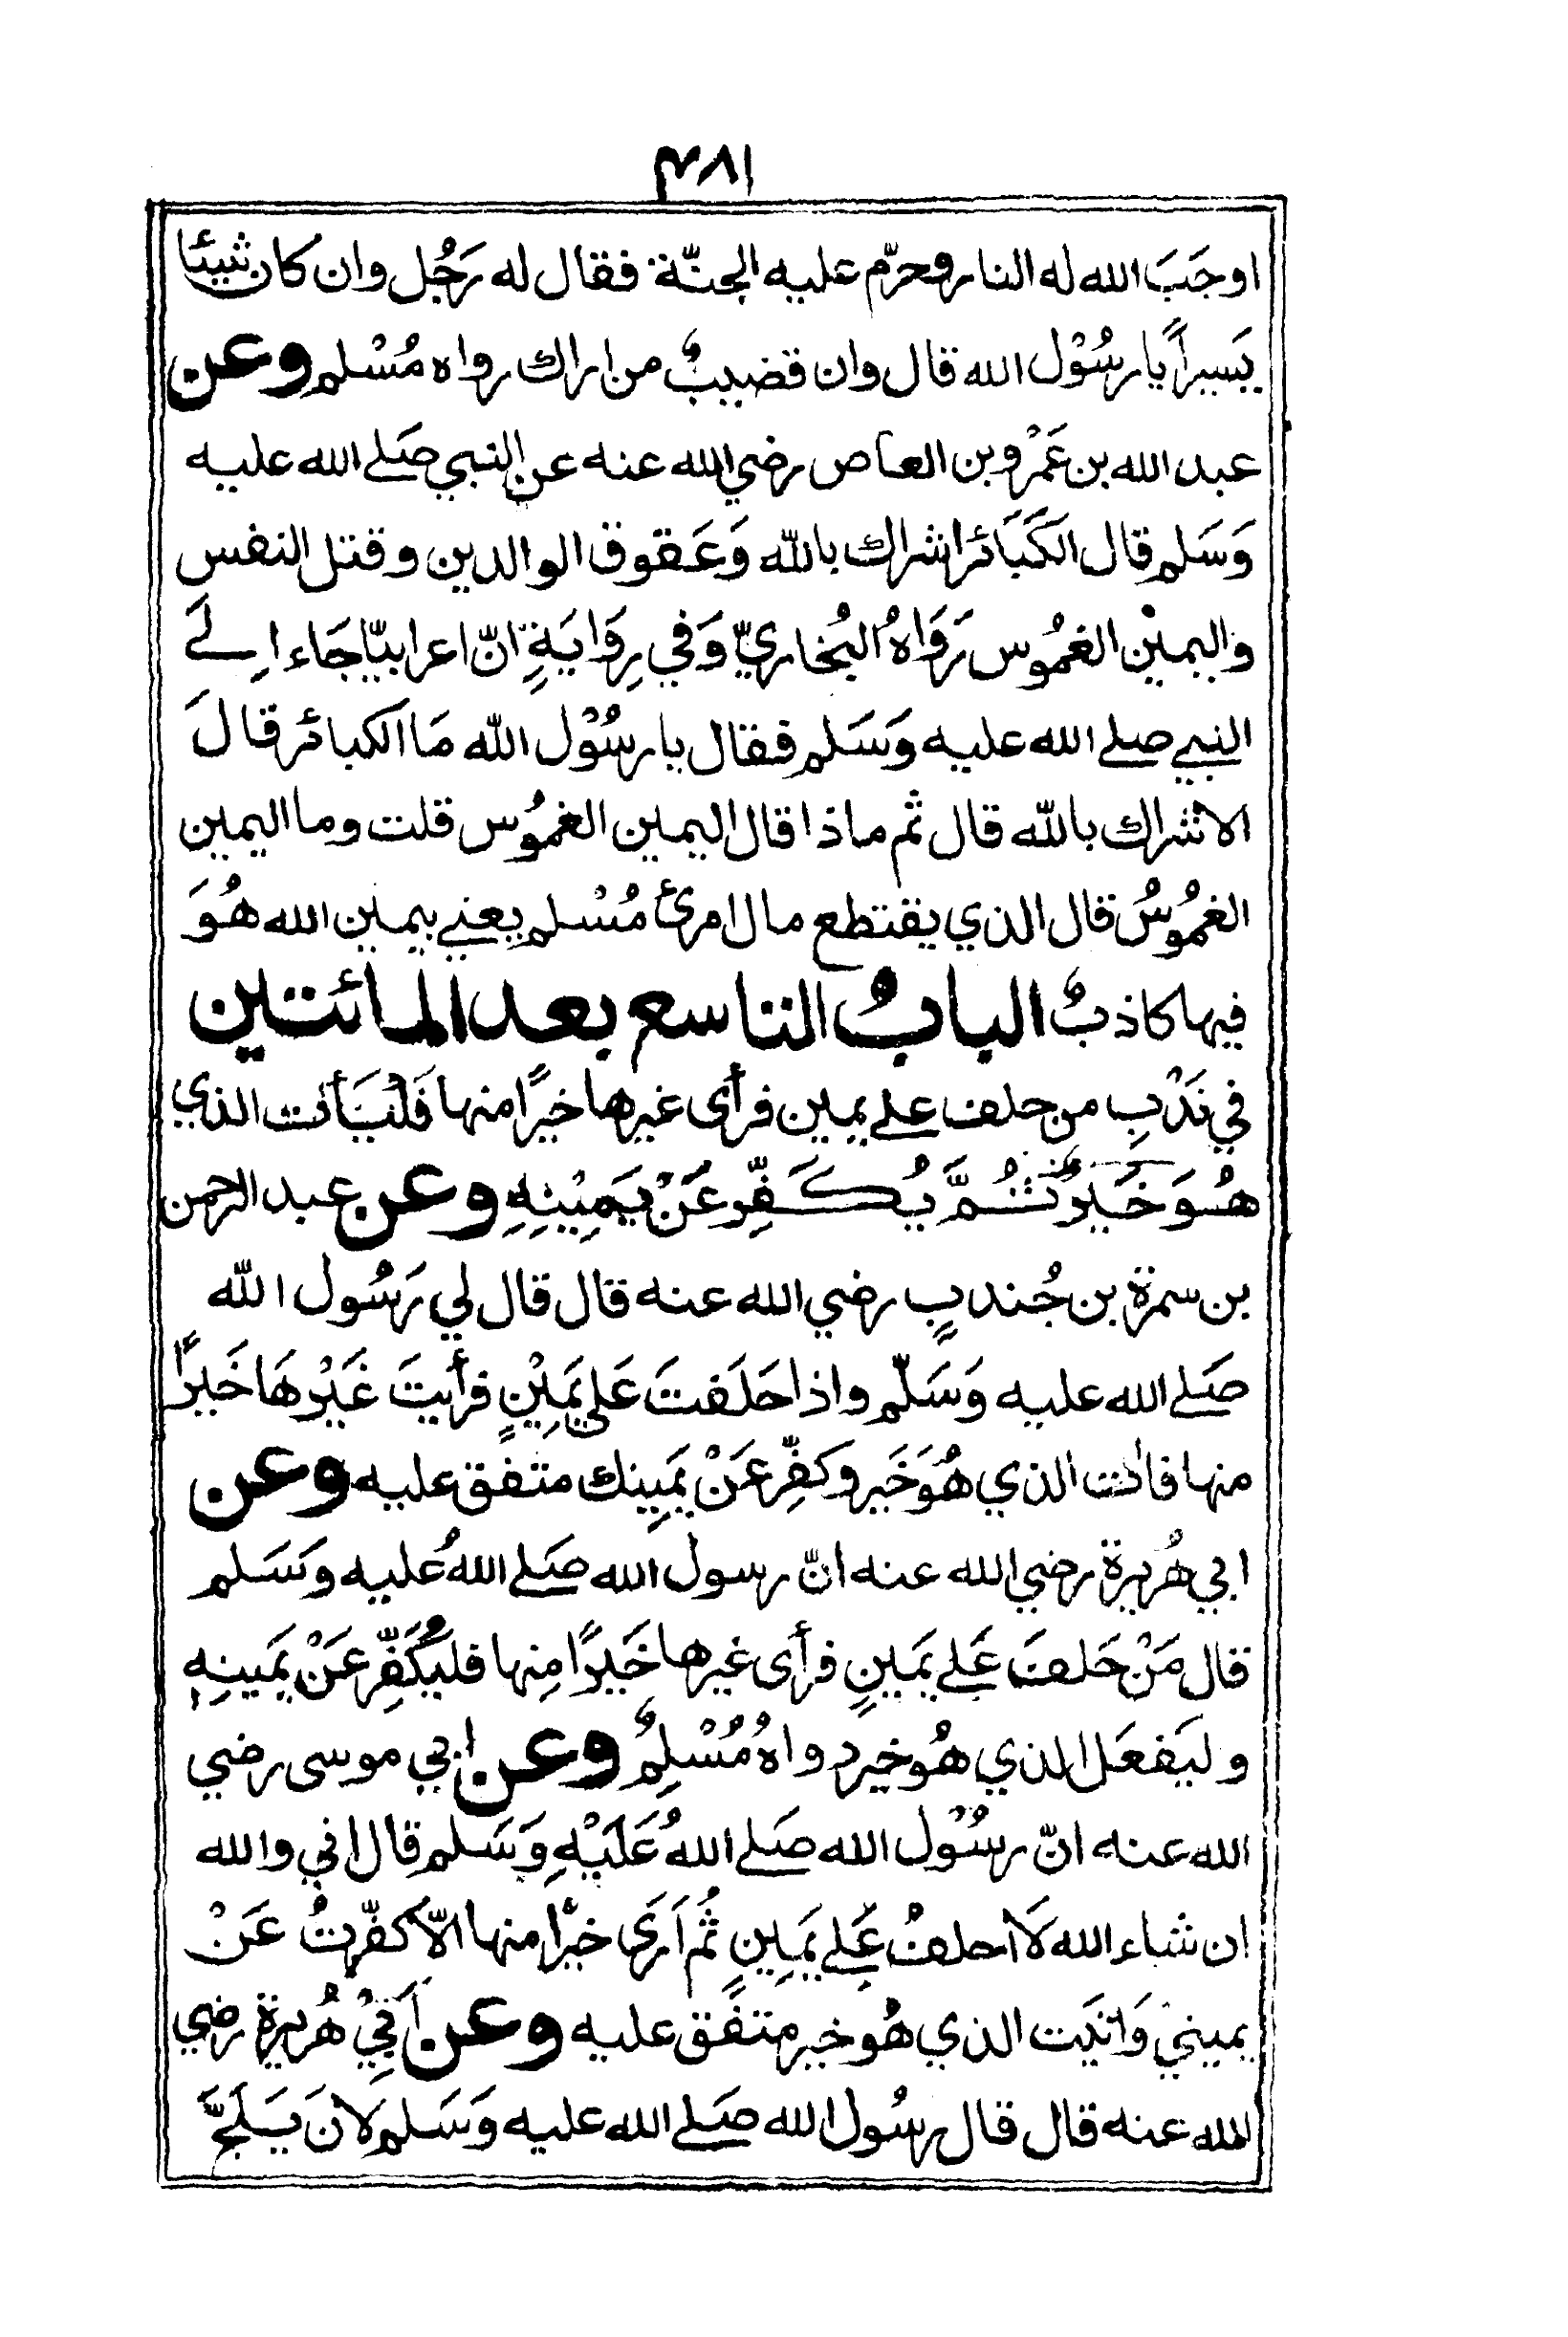 ٣٨١
اوجَبَ الله له النار وحرّم عليه الجنّة فقال له رَجُل وان كان شيئا
يَسيراً يا رسُوْل الله قال وان قضيبٌ من اراك رواه مُسْلم وعن
عبد الله بن عَمْرو بن العاص رضي الله عنه عن النبي صَلے الله عليه
وَسَلم قال الكَبَائر اشراك بالله وَعَقوق الوالدين وقتل النفس
واليميْن الغمُوس رَوَاهُ البُخاريّ وَفي رِوَايَةٍ انّ اعرابيّا جَاء اِلےَ
النبي صلے الله عليه وَسَلم فقال يا رسُوْل الله مَا الكبائر قالَ
الاشراك بالله قال ثم ماذا قال اليمين الغمُوس قلت وما اليمين
الغمُوسُ قال الذي يقتطع مال امرئ مُسْلم يعني بيمين الله هُوَ
فيها كاذبٌ البابُ التاسع بعد المائتين
في نَدْبِ من حلف علے يمين فرأى غيرها خيرًا منها فَلْيَأت الذي
هُوَ خَيرٌ ثُمَّ يُكَفِّر عَنْ يَمِيْنِهِ وعن عبد الرحمن
بن سمرة بن جُندبٍ رضي الله عنه قال قال لي رَسُول الله
صَلے الله عليه وَسَلّم واذا حَلَفتَ عَلي يَمِيْنٍ فرأيتَ غَيْرهَا خَيرًا
منها فأت الذي هُوَ خَير وكفِّر عَنْ يَمِينك متفق عليه وعن
ابي هُريرة رضي الله عنه انّ رسول الله صَلے اللهُ عليه وَسَلم
قال مَنْ حَلفَ عَلے يَمينٍ فرأى غيرها خَيرًا مِنها فليُكَفِّر عَنْ يَمينِهِ
وليَفعَل الذي هُو خير رواهُ مُسْلِمٌ وعن ابي موسى رضي
الله عنه انّ رسُوْل الله صَلے اللهُ عَلَيْهِ وَسَلم قال اني والله
ان شاء الله لَا احلفُ عَلے يَمِينٍ ثُم اَرَى خيرًا منها الّا كفّرتُ عَنْ
يميني وَاتَيت الذي هُو خير متفَق عليه وعن اَبيْ هُريرة رضي
الله عنه قال قال رسُول الله صَلے الله عليه وَسَلم لاَنَ يَلَجَّ